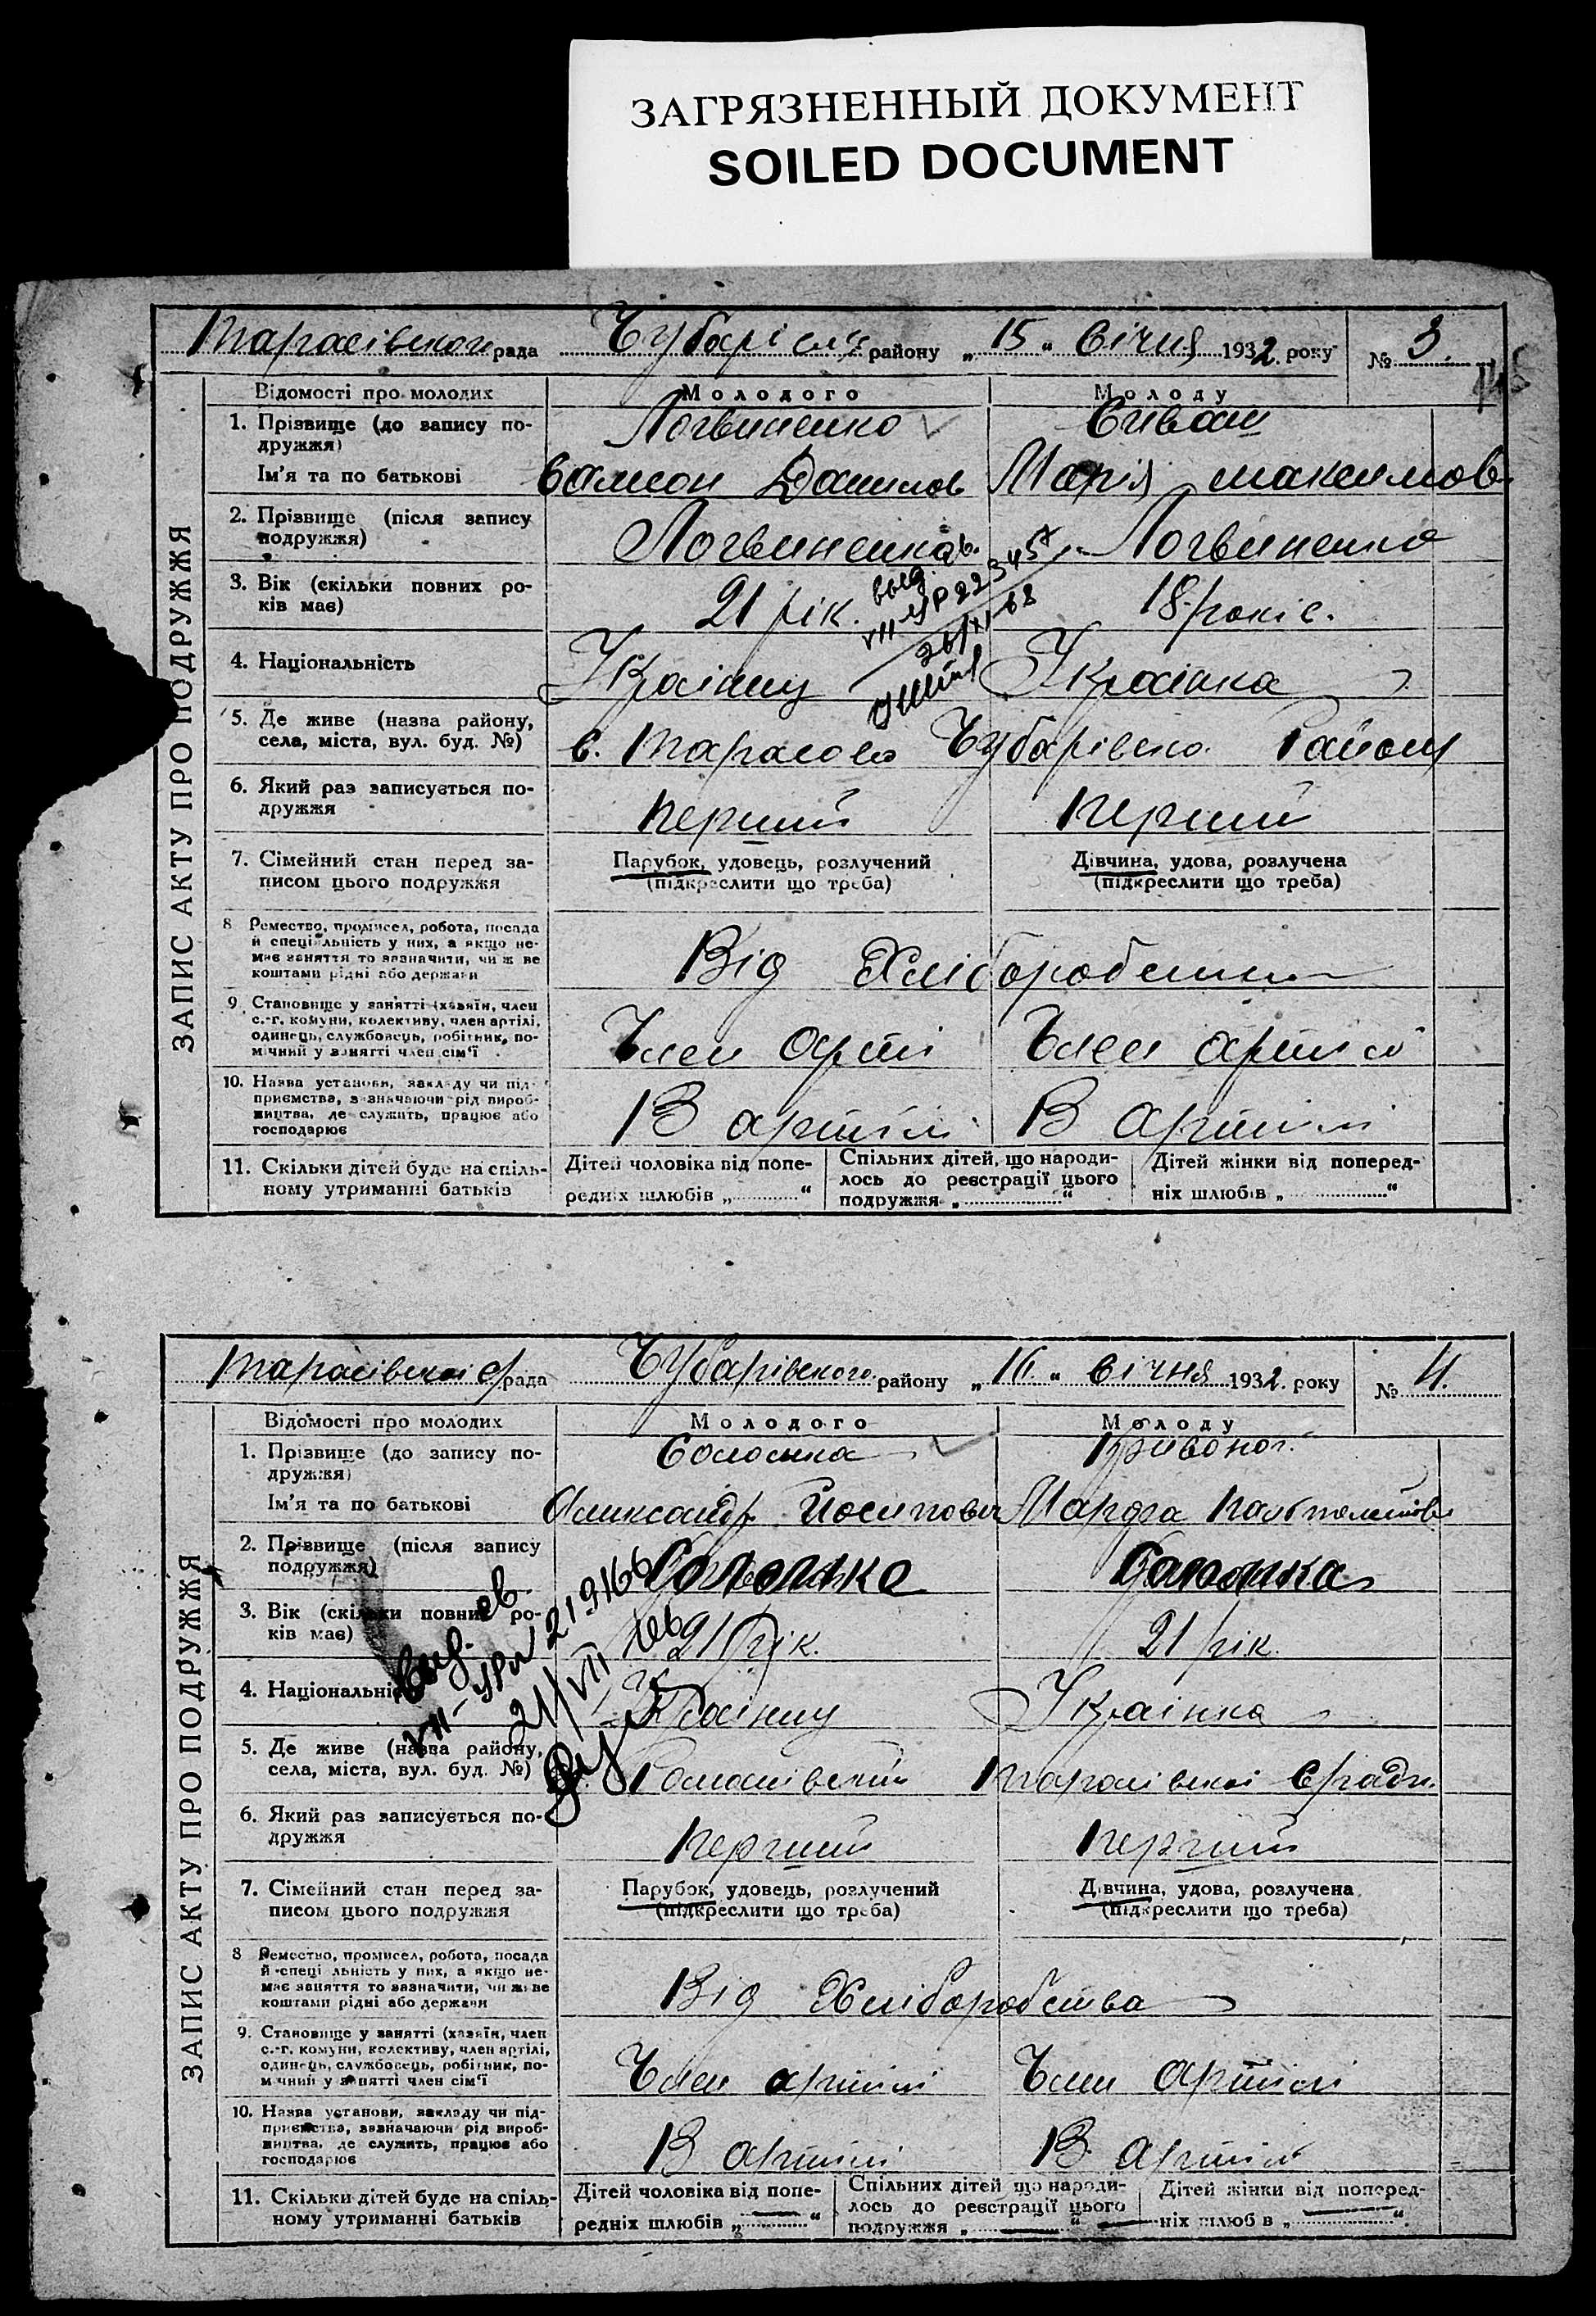 ЗАГРЯЗНЕННЫЙ ДОКУМЕНТ
SOILED DOCUMENT
Тарасівської рада Чубарівськ району „15“ Січня 1932 року № 3.
ЗАПИС АКТУ ПРО ПОДРУЖЖЯ
Відомості про молодих Молодого Молоду
1. Прізвище (до запису по- Логвиненко Сиваш
дружжя)
Ім'я та по батькові Самсон Данилов Марія Максимов
2. Прізвище (після запису Логвиненко Логвиненко
подружжя)
3. Вік (скільки повних ро- 21 рік. 18 років.
ків має)
выд.
VII-УР 223457
26/XI-68
4. Національність Українец Українка
5. Де живе (назва району,
села, міста, вул. буд. №) с. Тарасовка Чубарівсько Району
6. Який раз записується по- перший перший
дружжя
7. Сімейний стан перед за- Парубок, удовець, розлучений Дівчина, удова, розлучена
писом цього подружжя (підкреслити що треба) (підкреслити що треба)
8 Ремество, промисел, робота, посада
й спеціяльність у них, а якщо не- Від Хліборобства
має заняття то зазначити, чи ж ве
коштами рідні або держави
9. Становище у занятті (хазяїн, член
с.-г. комуни, колективу, член артілі, Член арті Член артілі
одинець, службовець, робітник, по-
мічний у занятті член сім'ї
10. Назва установи, закладу чи під-
приємства, зазначаючи рід вироб- В артілі В артілі
ництва, де служить, працює або
господарює
11. Скільки дітей буде на спіль- Дітей чоловіка від попе- Спільних дітей, що народи- Дітей жінки від поперед-
ному утриманні батьків редніх шлюбів „ “ лось до реєстрації цього ніх шлюбів „ “
подружжя „ “
Тарасівської с/рада Чубарівського району „16.“ Січня 1932. року № 4.
ЗАПИС АКТУ ПРО ПОДРУЖЖЯ
Відомості про молодих Молодого Молоду
1. Прізвище (до запису по- Солошка Кривоног.
дружжя)
Ім'я та по батькові Олександр Йосипович Марфа
2. Прізвище (після запису Солошка Солошка
подружжя)
3. Вік (скільки повних ро- 21 рік. 21 рік.
ків має)
выд. св.
VII-УР № 219166
21/VII
4. Національність Українец Українка
5. Де живе (назва району,
села, міста, вул. буд. №) Тарасівської с/ради.
6. Який раз записується по- перший перший
дружжя
7. Сімейний стан перед за- Парубок, удовець, розлучений Дівчина, удова, розлучена
писом цього подружжя (підкреслити що треба) (підкреслити що треба)
8 Ремество, промисел, робота, посада
й спеціяльність у них, а якщо не- Від Хліборобства
має заняття то зазначити, чи ж ве
коштами рідні або держави
9. Становище у занятті (хазяїн, член
с.-г. комуни, колективу, член артілі, Член артілі Член артілі
одинець, службовець, робітник, по-
мічний у занятті член сім'ї
10. Назва установи, закладу чи під-
приємства, зазначаючи рід вироб- В артілі В артілі
ництва, де служить, працює або
господарює
11. Скільки дітей буде на спіль- Дітей чоловіка від попе- Спільних дітей що народи- Дітей жінки від поперед-
ному утриманні батьків редніх шлюбів „ “ лось до реєстрації цього ніх шлюбів „ “
подружжя „ “